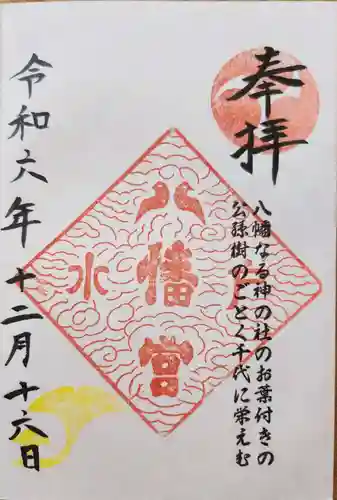 奉拝
八幡なる神の社のお葉付きの
公孫樹のごとく千代に栄えむ
八幡宮
水
令和六年十二月十六日